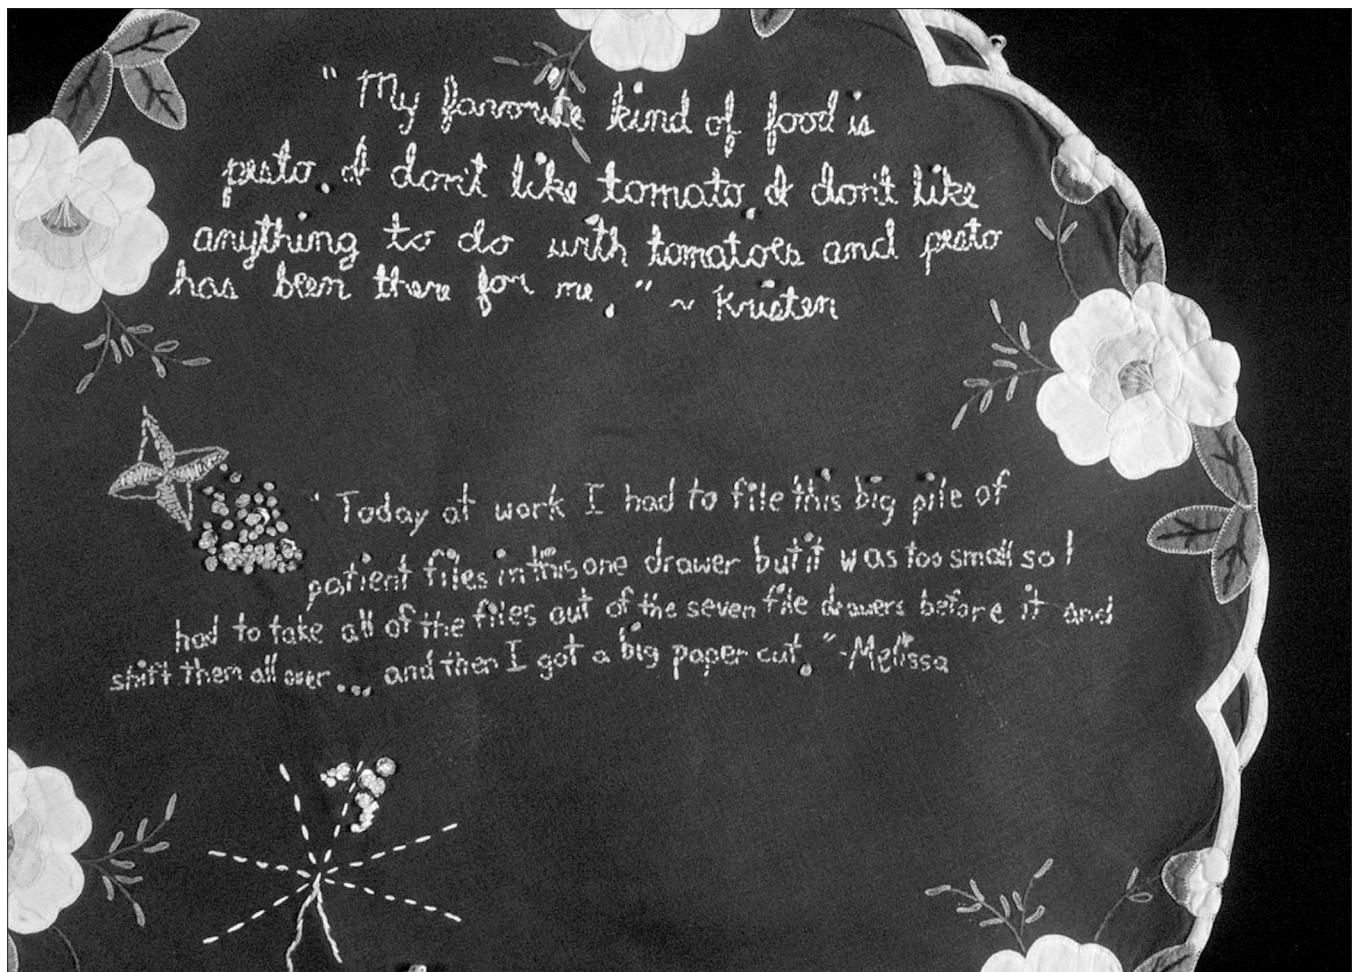 "My favorite kind of food is
pesto. I don't like tomato. I don't like
anything to do with tomatoes and pesto
has been there for me." ~ Kristen
"Today at work I had to file this big pile of
patient files in this one drawer but it was too small so I
had to take all of the files out of the seven file drawers before it and
shift them all over... and then I got a big paper cut." -Melissa